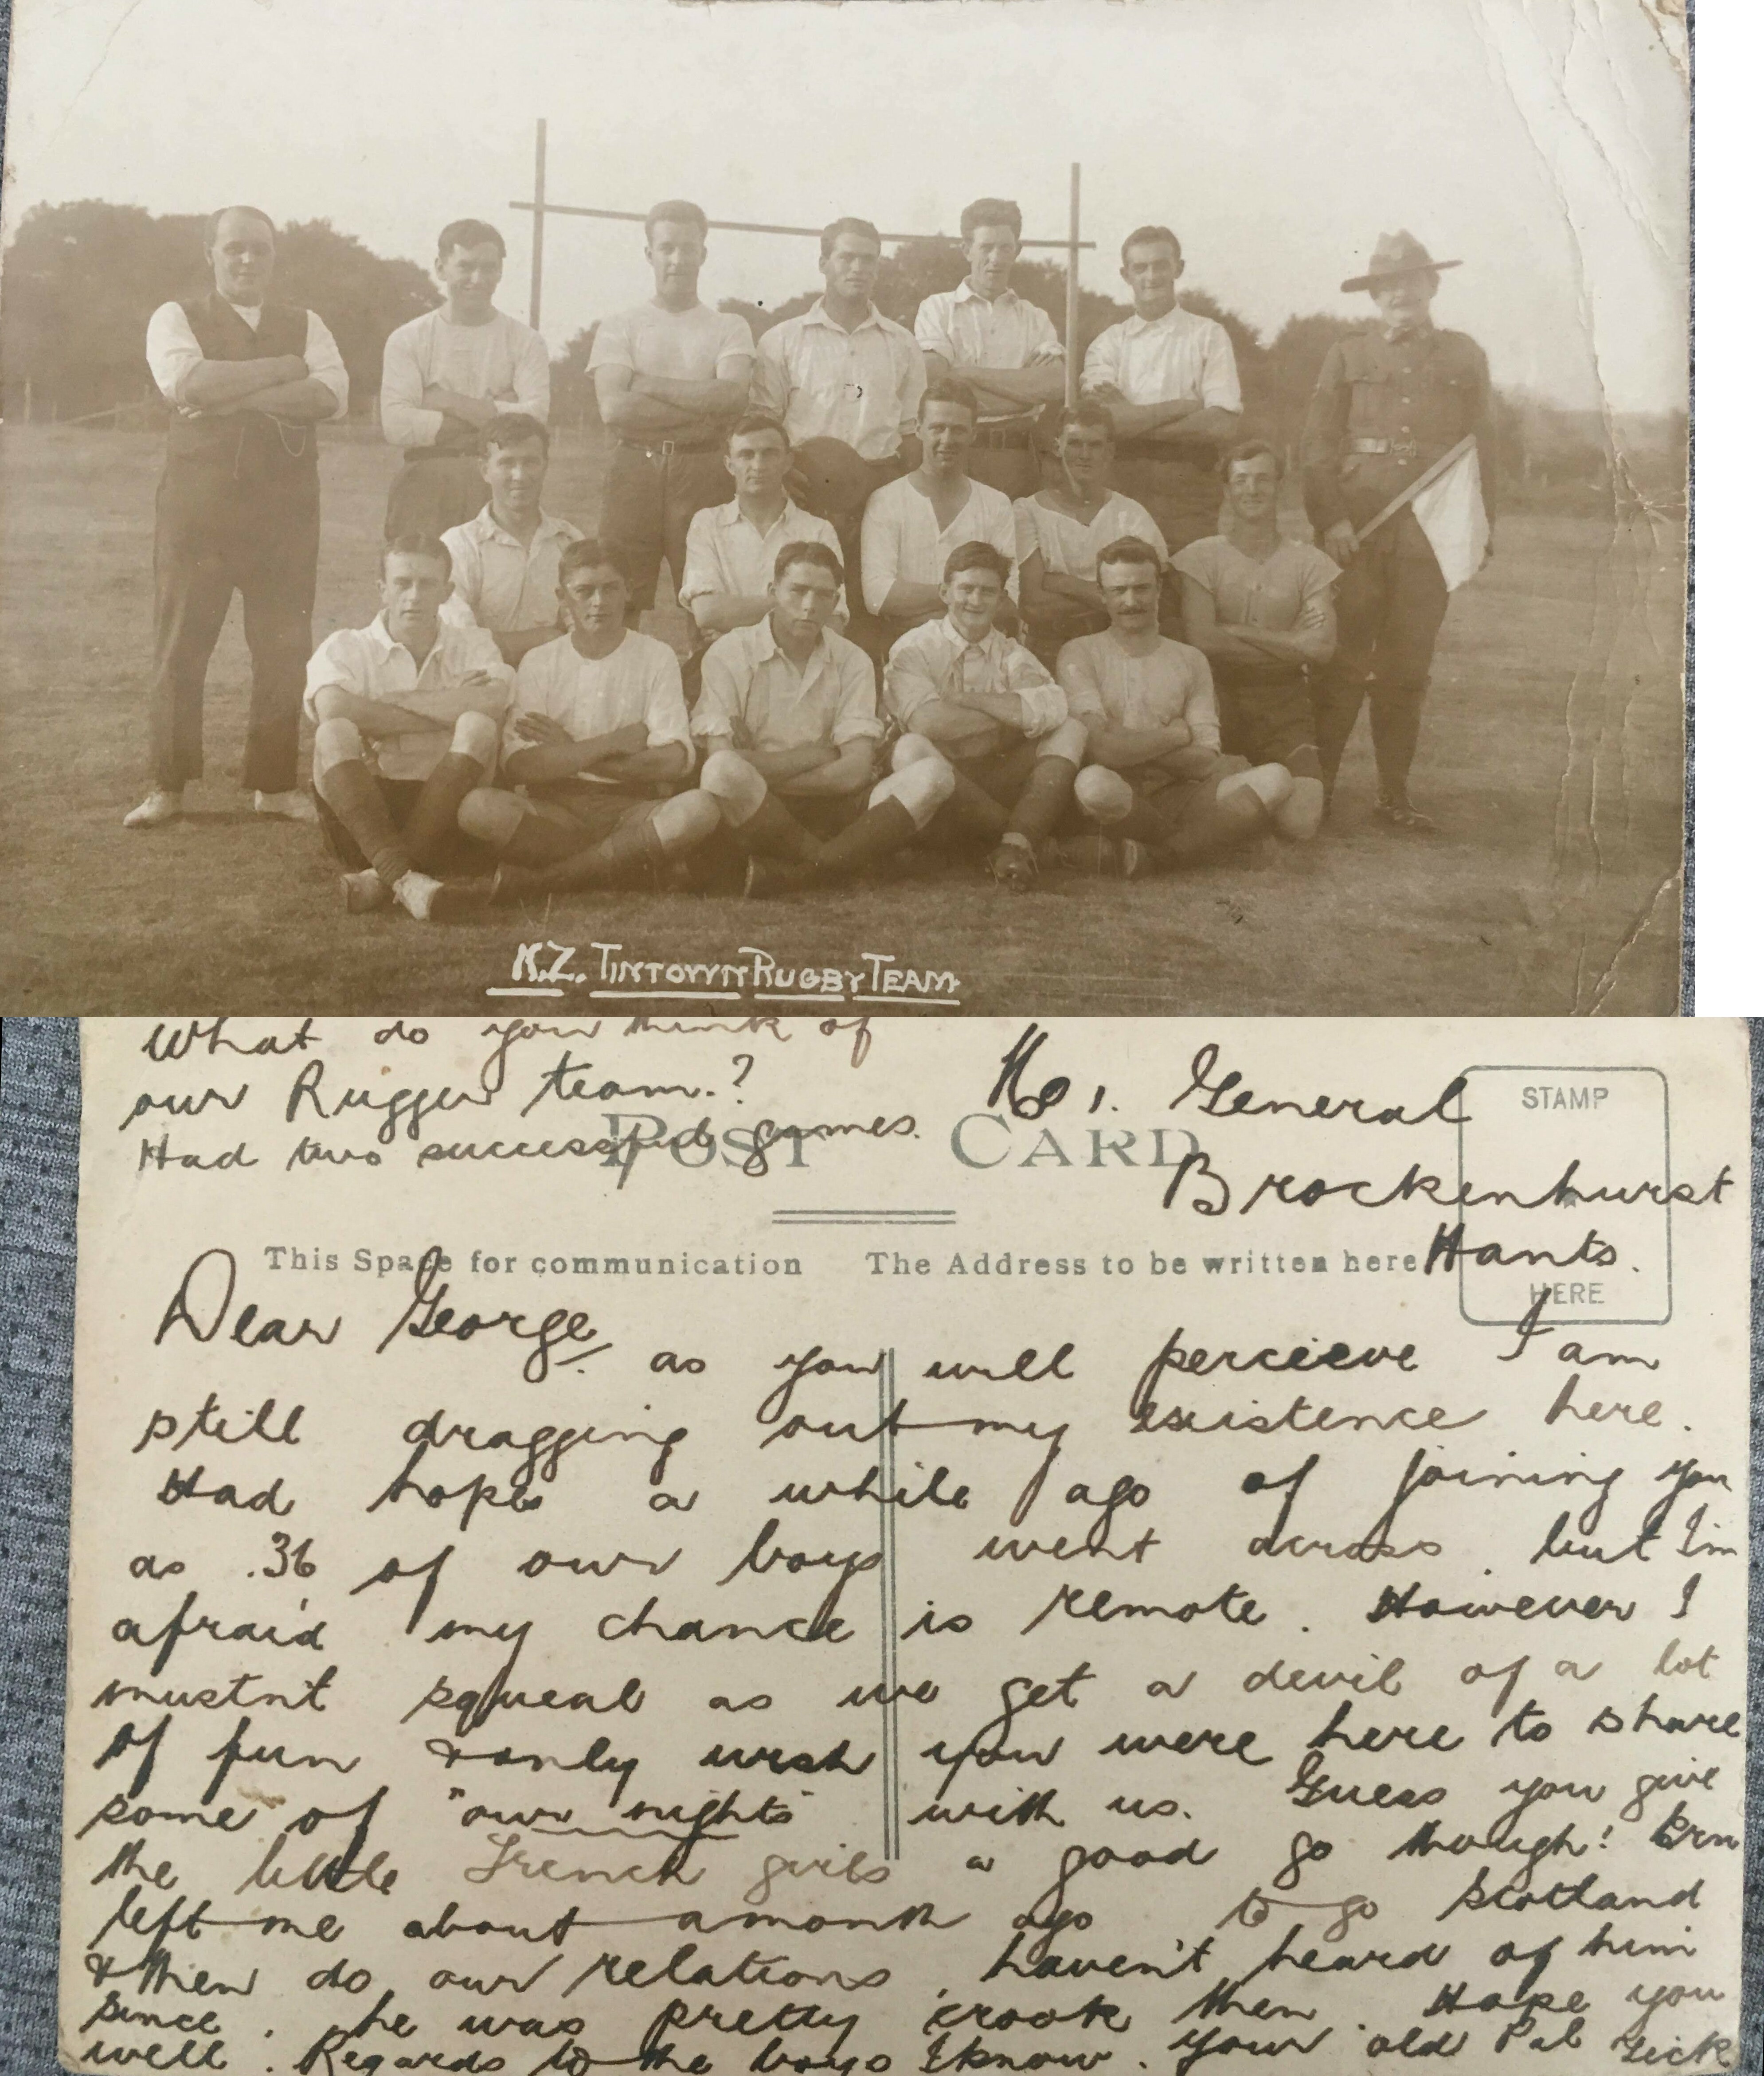 N.Z. TINTOWN RUGBY TEAM
What do you think of
our Rugger team.?
Had two successful games.
No 1. General
Brockenhurst
Hants.
POST CARD
STAMP
HERE
This Space for communication
The Address to be written here
Dear George,
as you will percieve I am
still dragging out my existence here.
Had hopes a while ago of joining you
as .36 of our boys went across but I'm
afraid my chance is remote. However I
mustnt squeal as we get a devil of a lot
of fun & only wish you were here to share
some of "our nights" with us. Guess you give
the little French girls a good go though! Ern
left me about a month ago to go Scotland
& then do our relations, haven't heard of him
since. he was pretty crook then. Hope you
well. Regards to the boys I know. Your old Pal